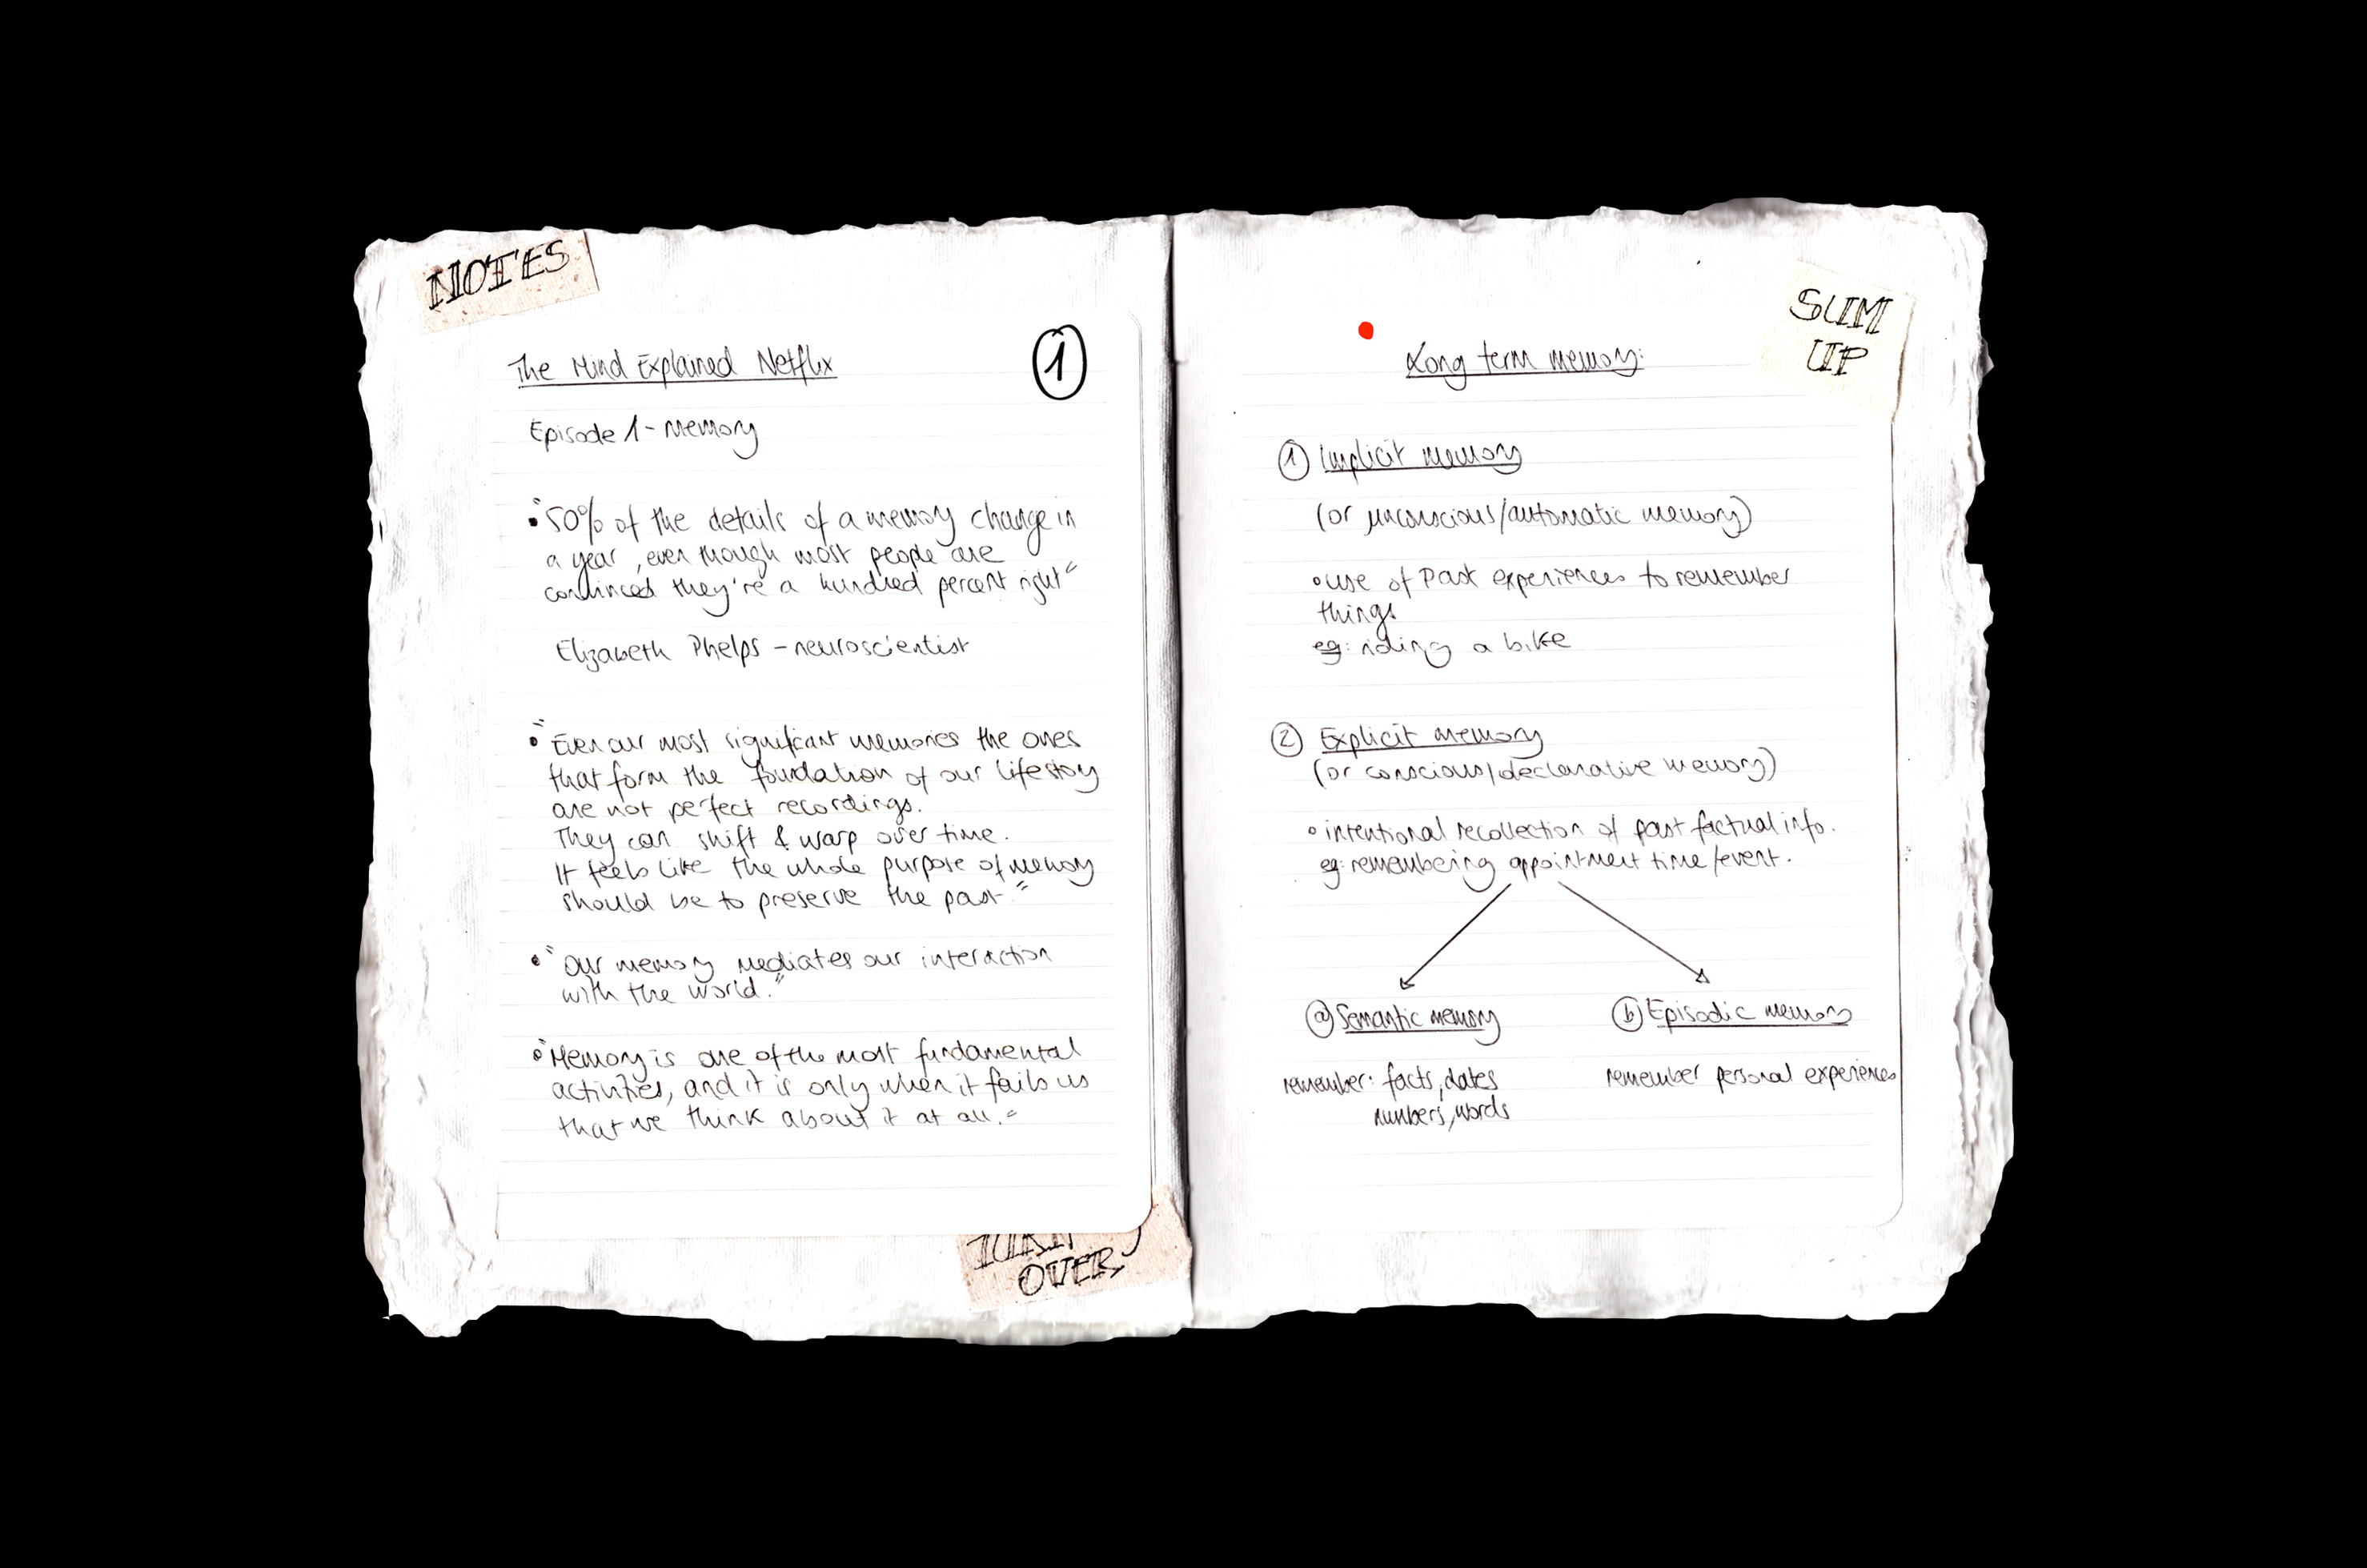 NOTES
The Mind Explained Netflix
1
Episode 1 - Memory
• "50% of the details of a memory change in
a year, even though most people are
convinced they're a hundred percent right"
Elizabeth Phelps - neuroscientist
• "Even our most significant memories the ones
that form the foundation of our life story
are not perfect recordings.
They can shift & warp over time.
It feels like the whole purpose of memory
should be to preserve the past."
• "Our memory mediates our interaction
with the world."
• "Memory is one of the most fundamental
activities, and it is only when it fails us
that we think about it at all."
TURN
OVER
SUM
UP
Long term memory:
① Implicit memory
(or unconscious/automatic memory)
• use of past experiences to remember
things
eg: riding a bike
② Explicit memory
(or conscious/declarative memory)
• intentional recollection of past factual info.
eg: remembering appointment time/event.
ⓐ Semantic memory
remember: facts, dates
numbers, words
ⓑ Episodic memory
remember personal experiences